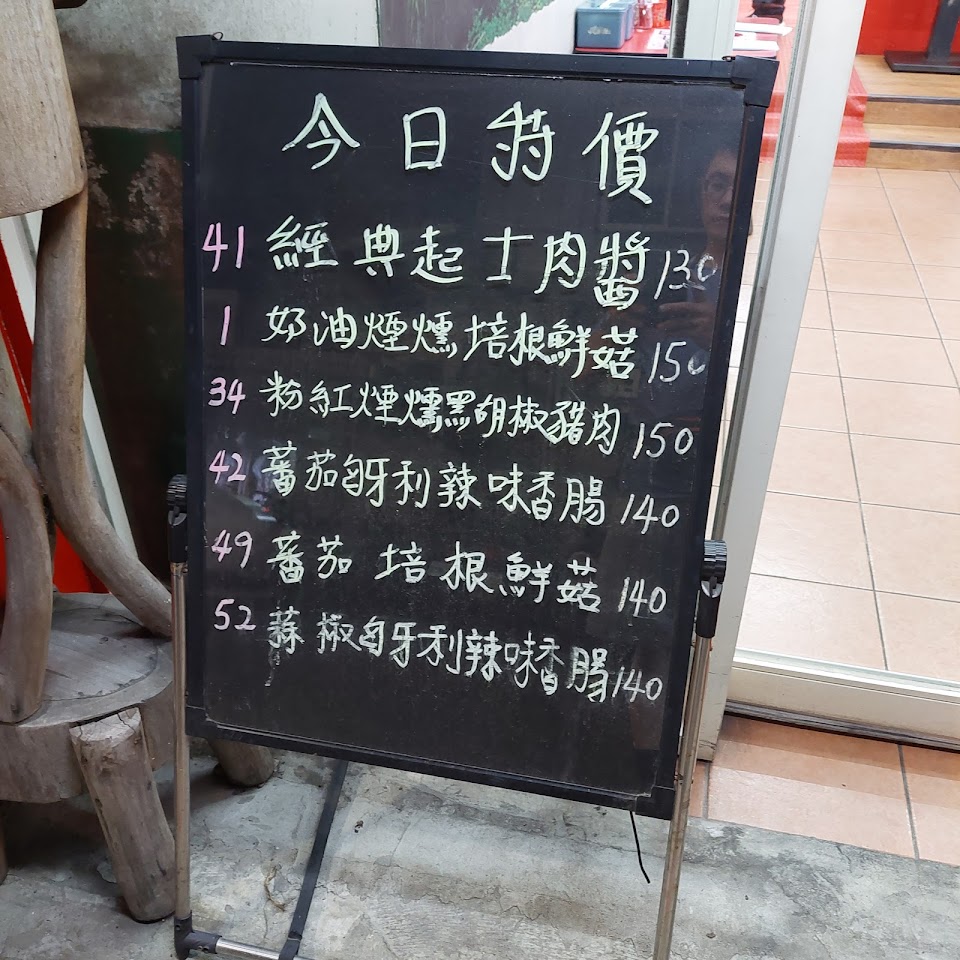 今日特價
41 經典起士肉醬 130
1 奶油煙燻培根鮮菇 150
34 粉紅煙燻黑胡椒豬肉 150
42 蕃茄匈牙利辣味香腸 140
49 蕃茄培根鮮菇 140
52 蒜椒匈牙利辣味香腸 140